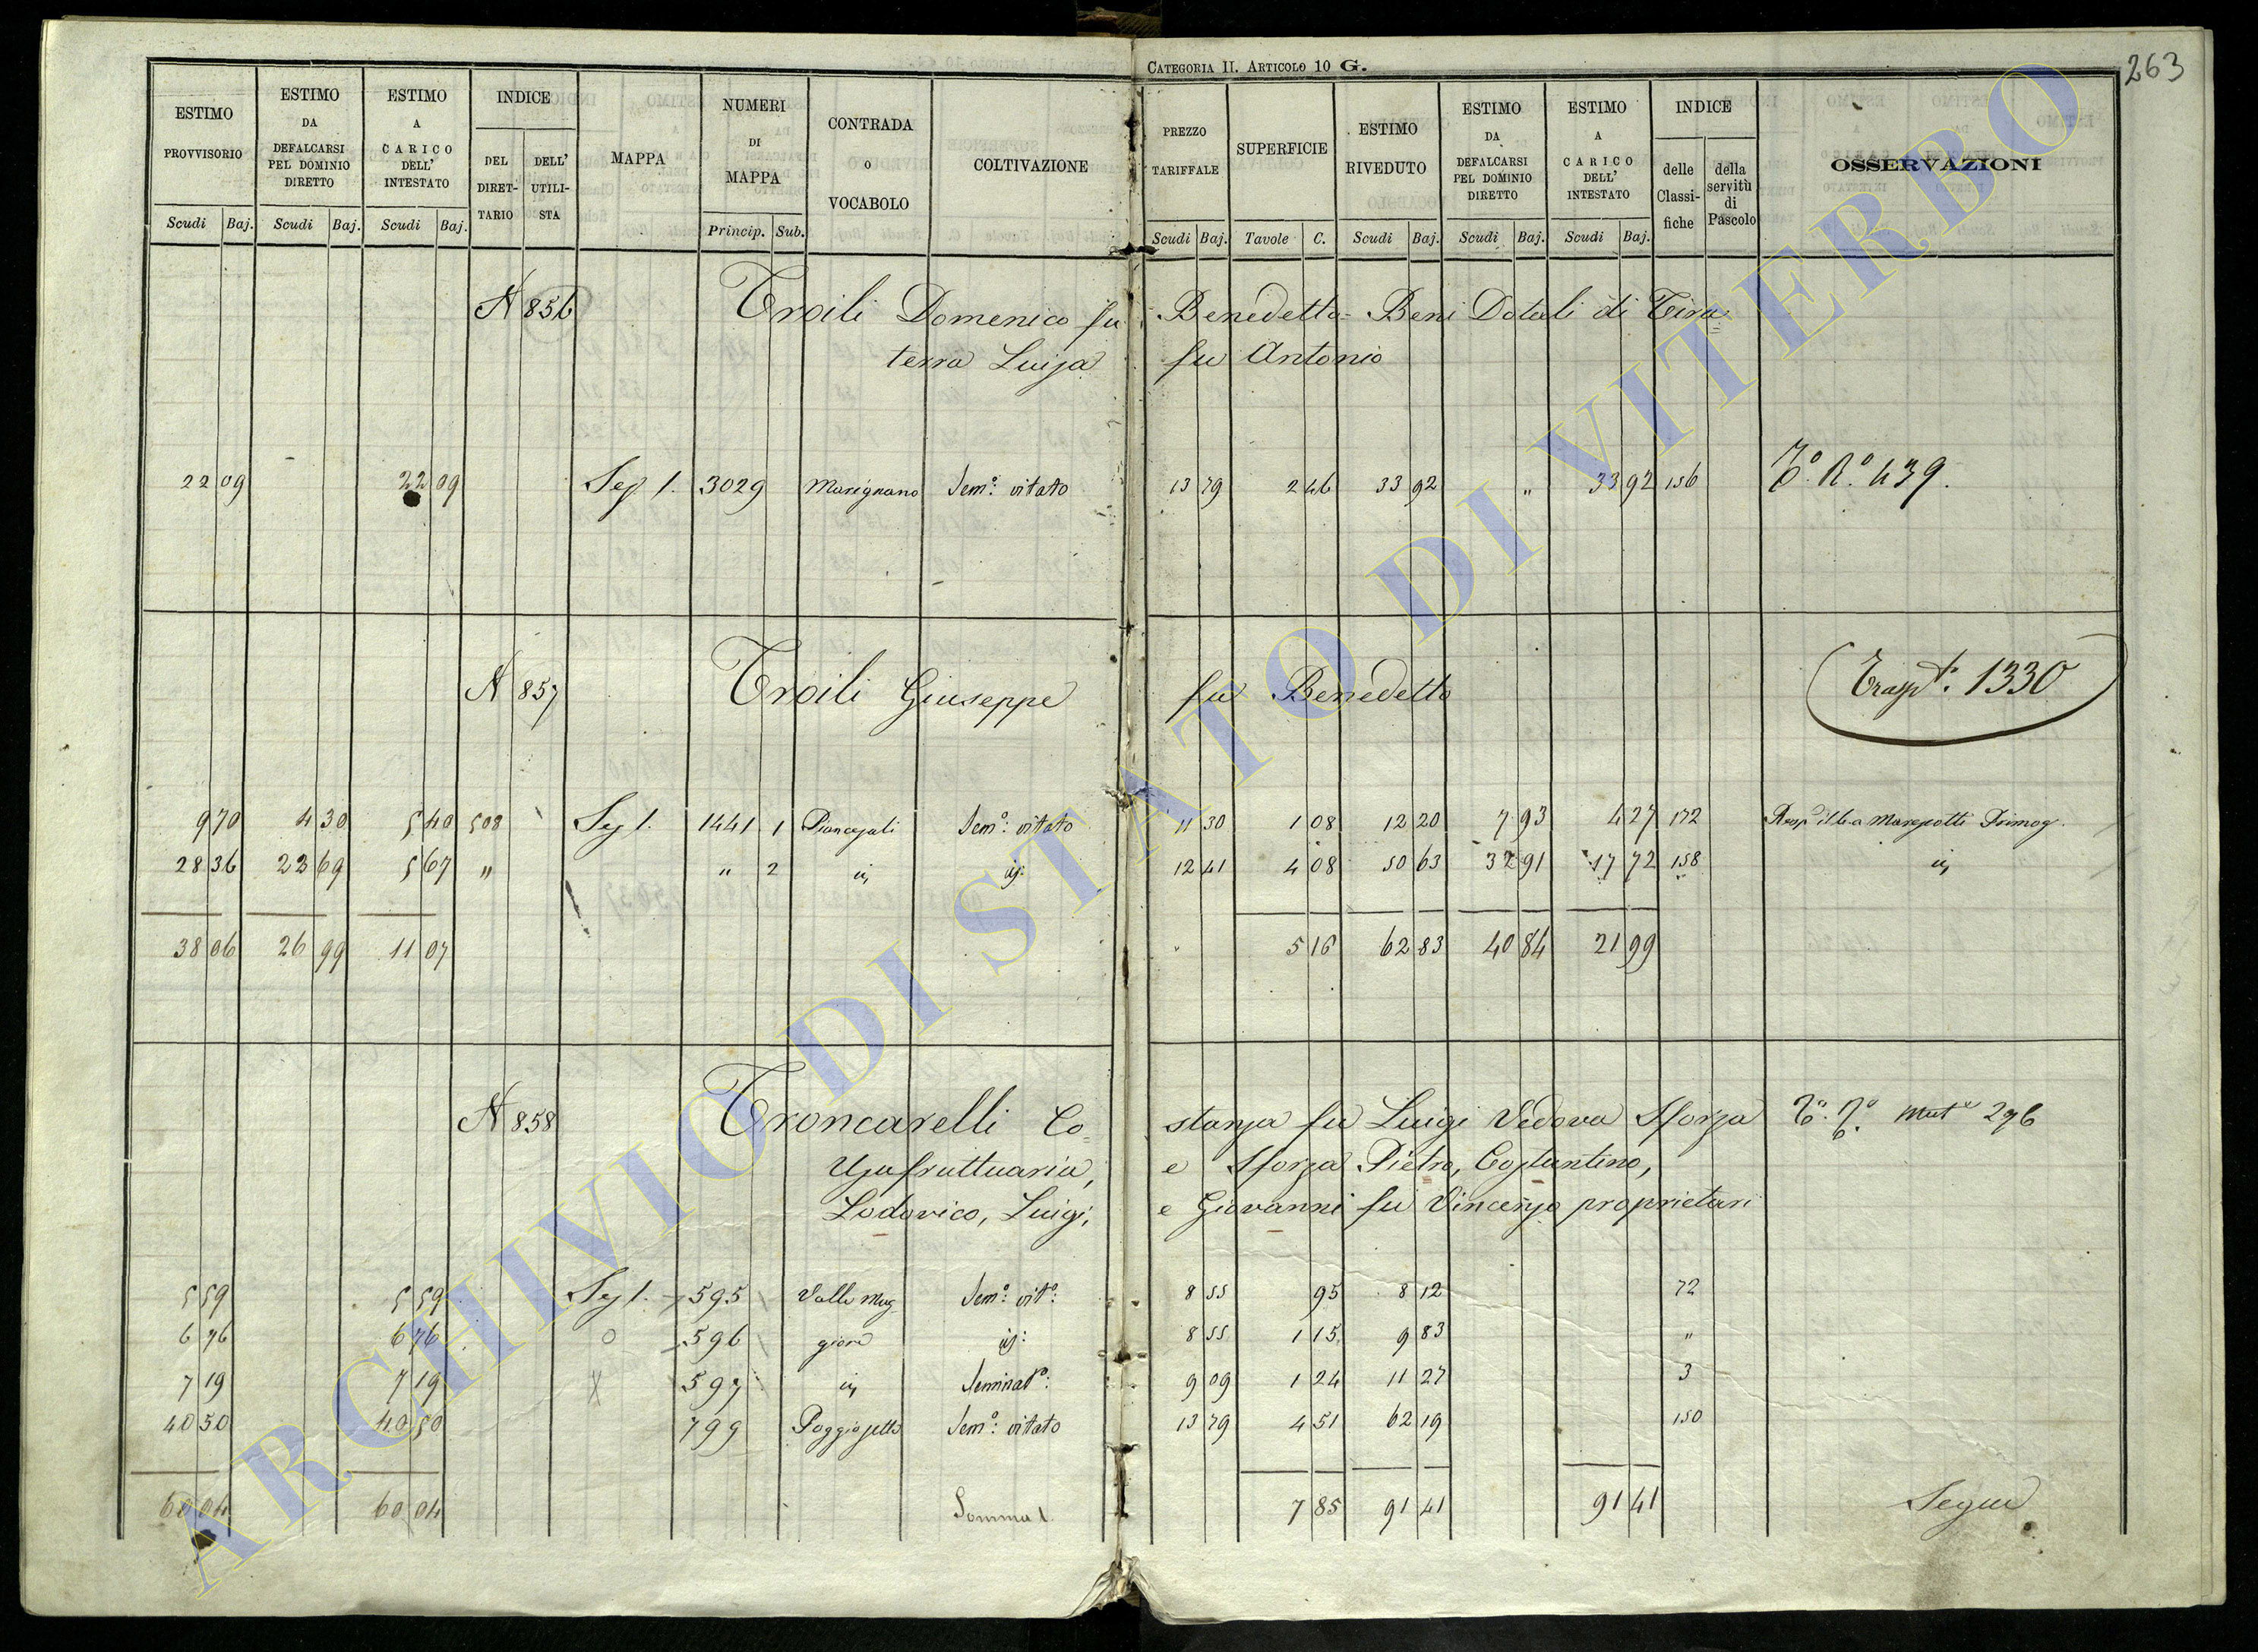 CATEGORIA II. ARTICOLO 10 G.
263
ESTIMO PROVVISORIO Scudi Baj.
ESTIMO DA DEFALCARSI PEL DOMINIO DIRETTO Scudi Baj.
ESTIMO A CARICO DELL' INTESTATO Scudi Baj.
INDICE DEL DIRET-TARIO DELL' UTILI-STA
MAPPA
NUMERI DI MAPPA Princip. Sub.
CONTRADA o VOCABOLO
COLTIVAZIONE
PREZZO TARIFFALE Scudi Baj.
SUPERFICIE Tavole C.
ESTIMO RIVEDUTO Scudi Baj.
ESTIMO DA DEFALCARSI PEL DOMINIO DIRETTO Scudi Baj.
ESTIMO A CARICO DELL' INTESTATO Scudi Baj.
INDICE delle Classi-fiche della servitù di Pascolo
OSSERVAZIONI
N 856 Troili Domenico fu Benedetto = Beni Dotali di Tira=
terra Luisa fu Antonio
22 09 22 09 Sez 1. 3029 Marignano Semo: vitato 13 79 2 46 33 92 " 33 92 156 To. Ro. 439.
N 857 Troili Giuseppe fu Benedetto Traspto: 1330
9 70 4 30 5 40 508 Sez 1. 1441 1 Semo: vitato 11 30 1 08 12 20 7 93 4 27 172 Primog.
28 36 22 69 5 67 " " 2 id id: 12 41 4 08 50 63 32 91 17 72 158 id
38 06 26 99 11 07 5 16 62 83 40 84 21 99
N 858 Troncarelli Co= stanza fu Luigi Vedova Sforza To. To. Muta 276
Usufruttuaria, e Sforza Pietro, Costantino,
Lodovico, Luigi, e Giovanni fu Vincenzo proprietari
5 59 5 59 Sez 1. 595 Valle Mag- Semo: vito: 8 55 95 8 12 72
6 76 6 76 596 giore id: 8 55 1 15 9 83 "
7 19 7 19 597 id Seminato: 9 09 1 24 11 27 3
40 50 40 50 799 Poggio setto Semo: vitato 13 79 4 51 62 19 150
60 04 60 04 Somma 1. 7 85 91 41 91 41 Segue
ARCHIVIO DI STATO DI VITERBO